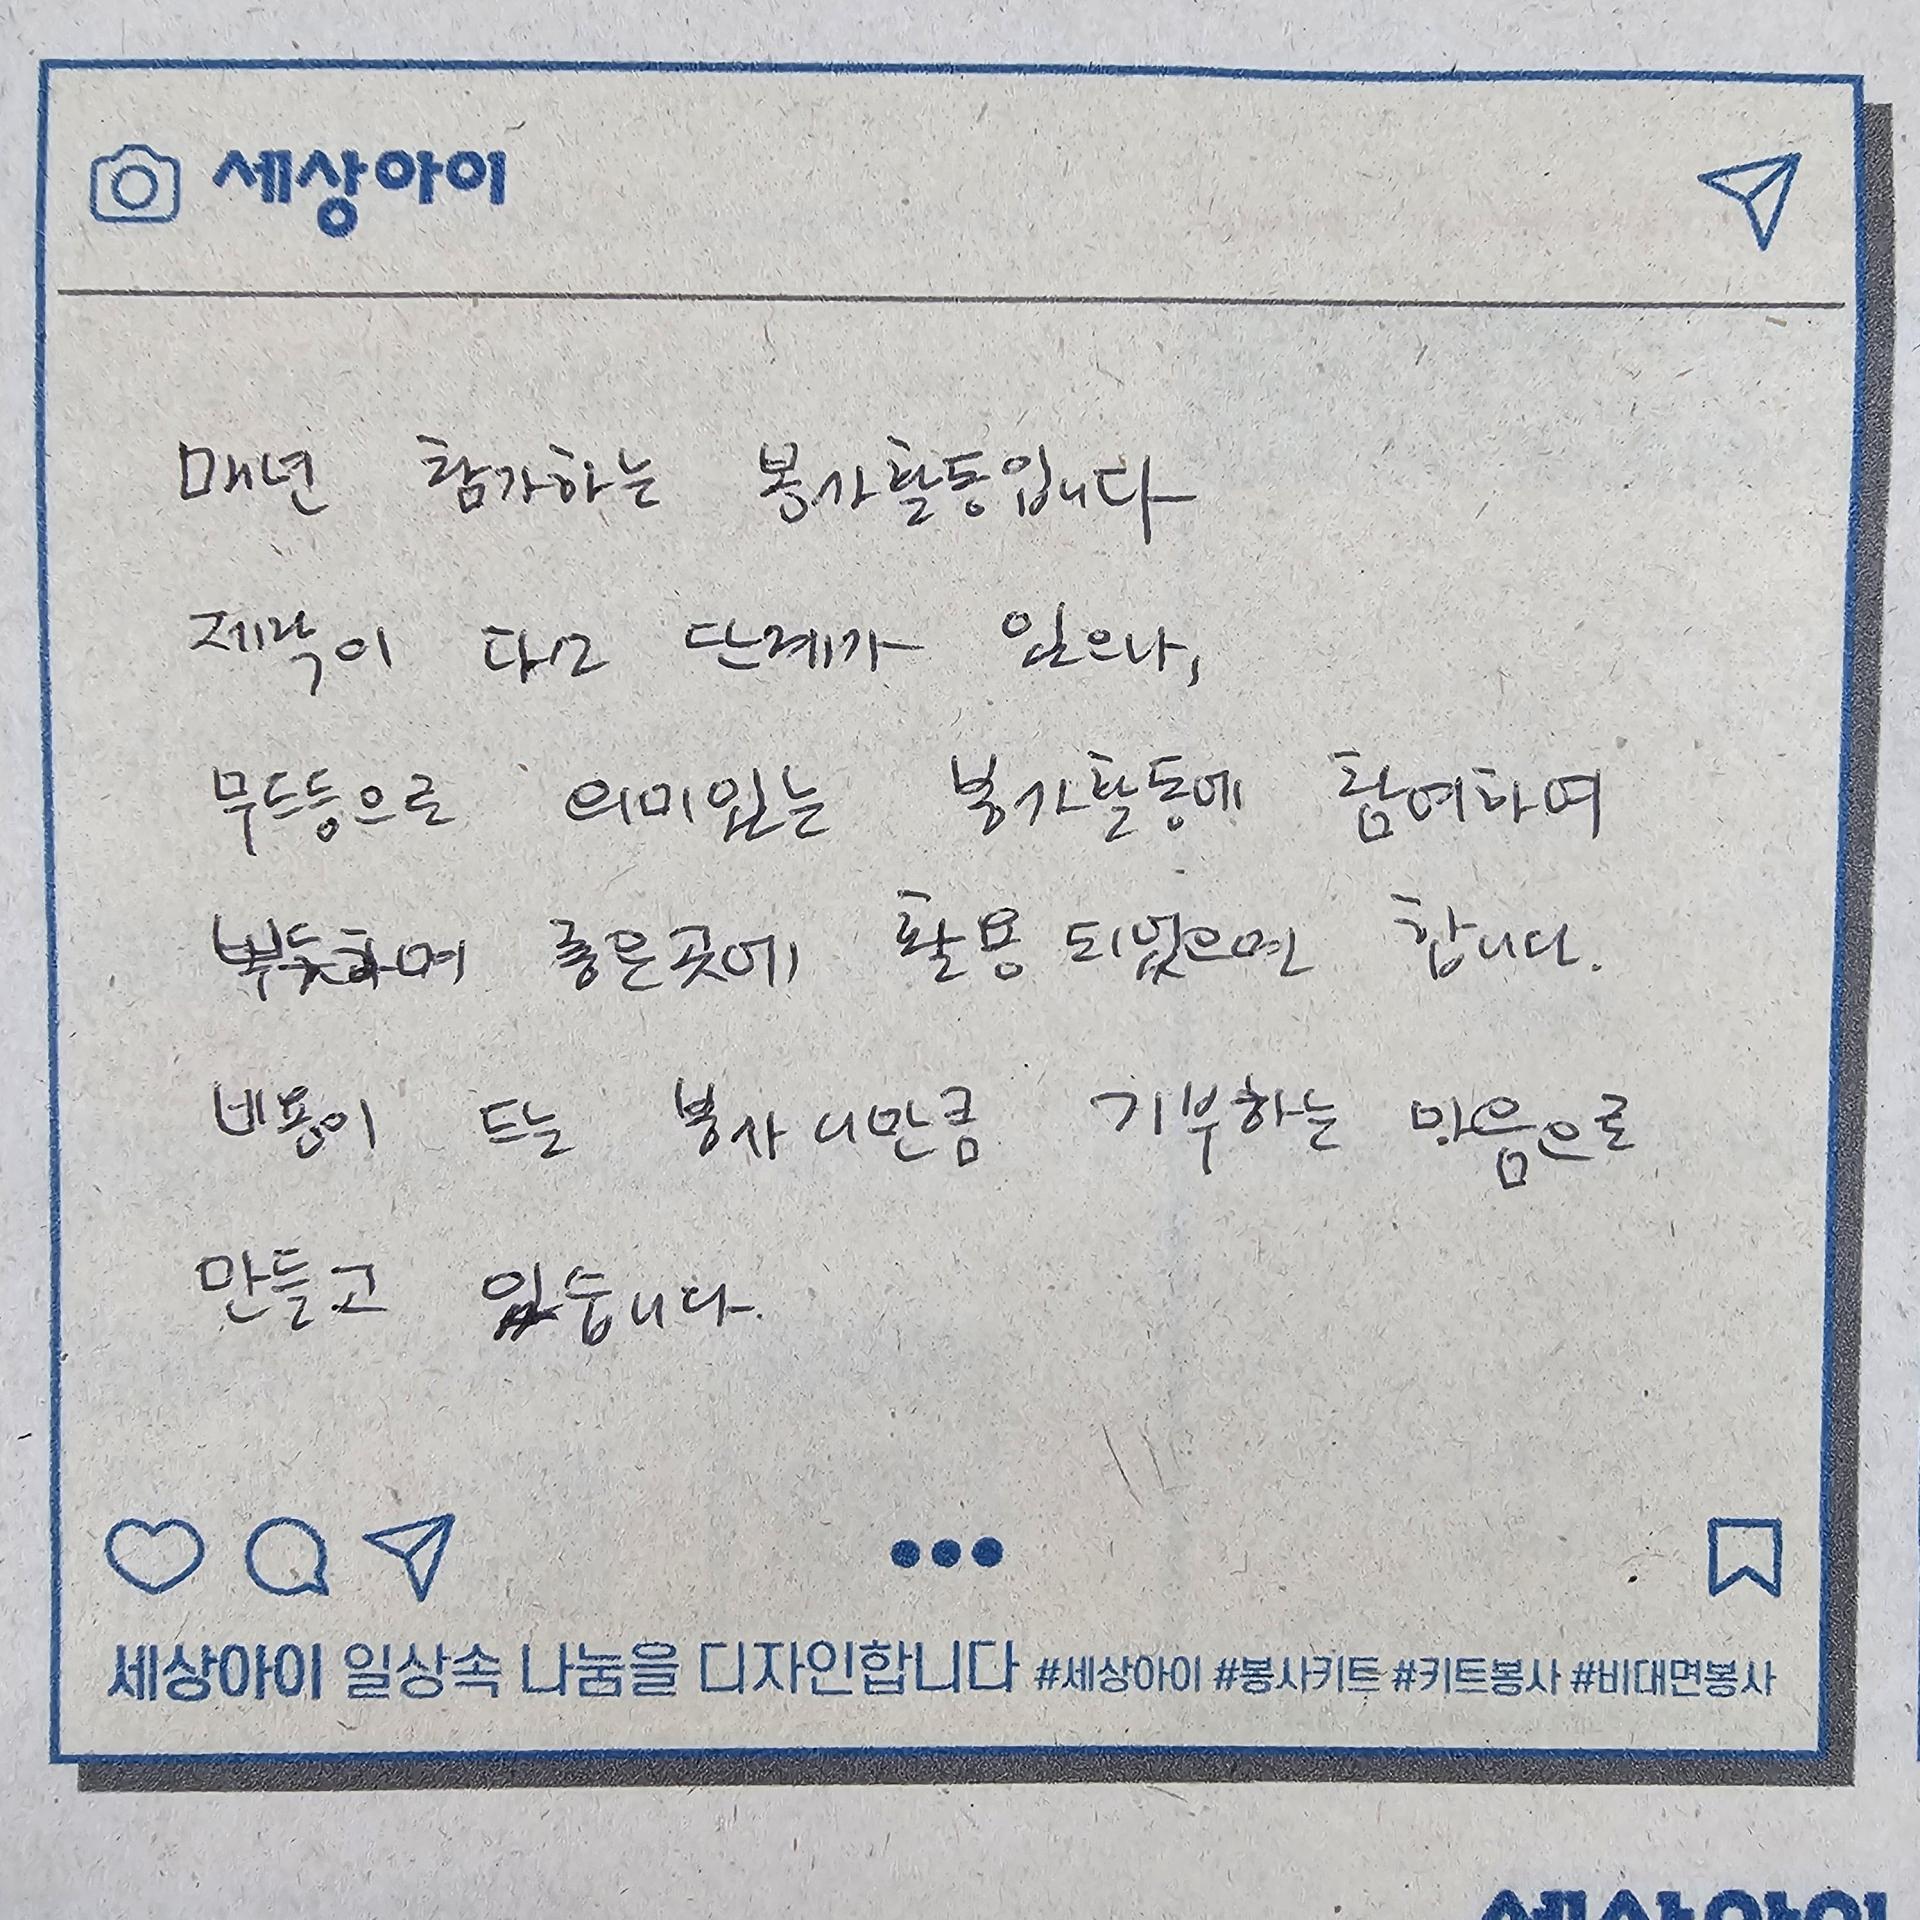 세상아이
매년 참가하는 봉사활동입니다
제작이 다고 단계가 있으나,
무드등으로 의미있는 봉사활동에 참여하여
뿌듯하며 좋은곳에 활용 되었으면 합니다.
비용이 드는 봉사니만큼 기부하는 마음으로
만들고 있습니다.
세상아이 일상속 나눔을 디자인합니다 #세상아이 #봉사키트 #키트봉사 #비대면봉사